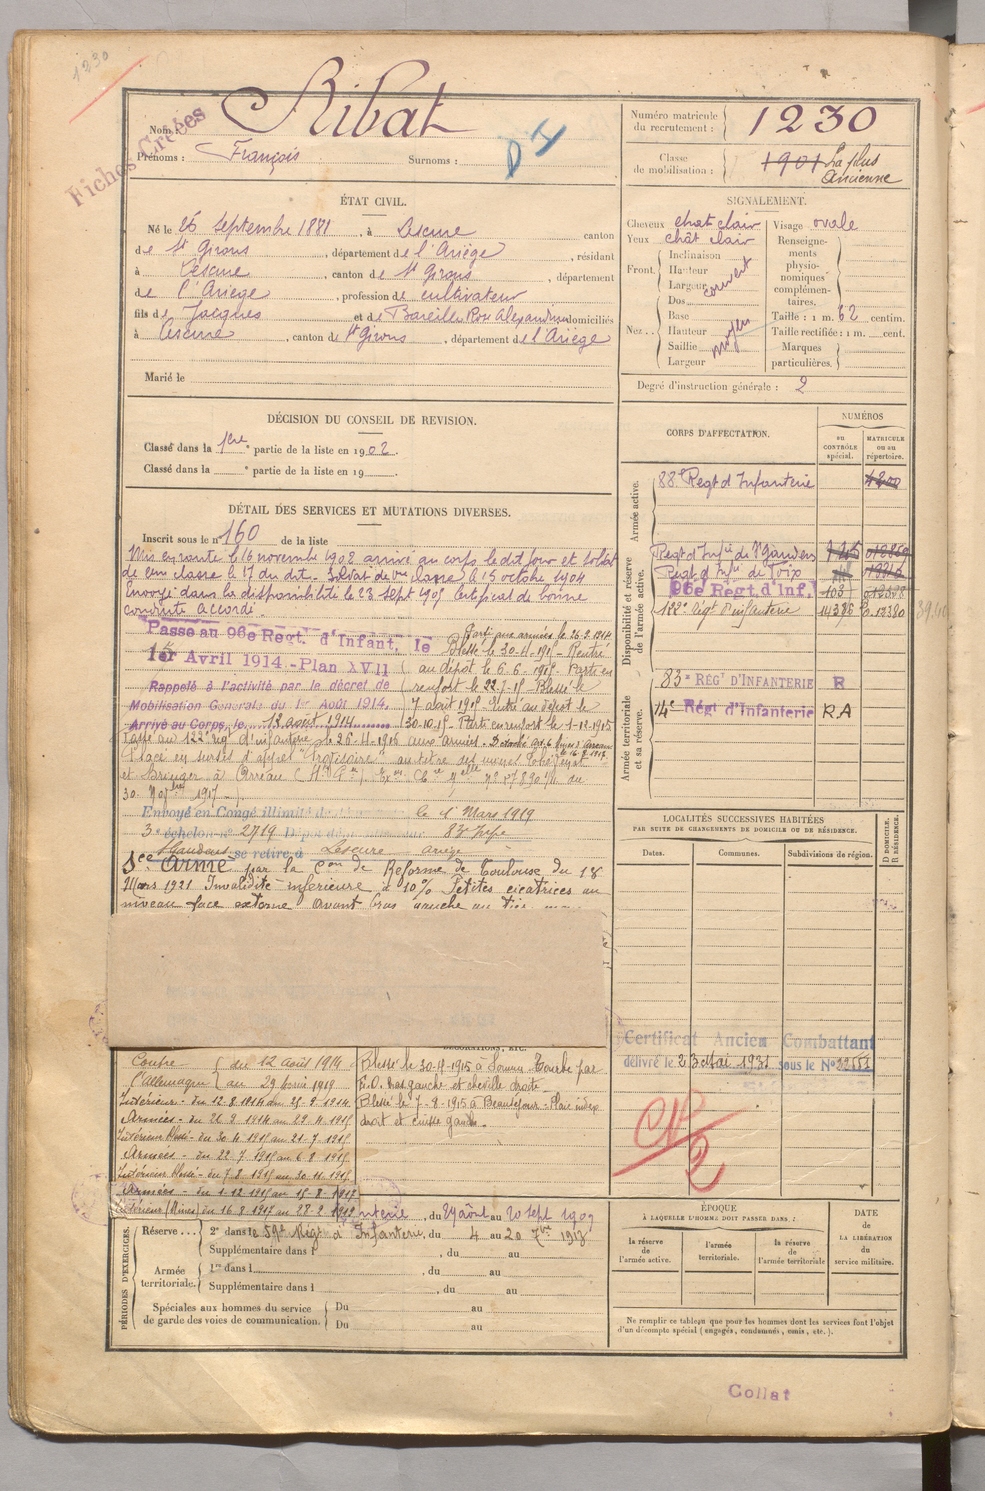 1230
Fiches Créées
Nom : Ribat
Prénoms : François Surnoms :
D I
Numéro matricule du recrutement : 1230
Classe de mobilisation : 1901 La plus Ancienne
ÉTAT CIVIL.
Né le 26 Septembre 1881, à Lescure canton
de St Girons, département de l'Ariège, résidant
à Lescure, canton de St Girons, département
de l'Ariège, profession de cultivateur
fils de Jacques et de Bareille Rose Alexandrine domiciliés
à Lescure, canton de St Girons, département de l'Ariège
Marié le
SIGNALEMENT.
Cheveux chat clair Visage ovale
Yeux chât clair
Front. Inclinaison
Hauteur
Largeur
couvert
Nez. Dos
Base
Hauteur
Saillie
Largeur
moyen
Renseignements physionomiques complémentaires.
Taille : 1 m. 62 centim.
Taille rectifiée : 1 m. cent.
Marques particulières.
Degré d'instruction générale : 2
DÉCISION DU CONSEIL DE REVISION.
Classé dans la 1ère partie de la liste en 1902.
Classé dans la e partie de la liste en 19
DÉTAIL DES SERVICES ET MUTATIONS DIVERSES.
Inscrit sous le n° 160 de la liste
Mis en route le 16 novembre 1902 arrivé au corps le dit jour et soldat
de 2ème classe à 17 du dit. Soldat de 1ère classe le 15 octobre 1904
Envoyé dans la disponibilité le 23 Sept 1905 Certificat de bonne
conduite accordé.
Passé au 96e Regt. d'Infant. le
1er Avril 1914 - Plan XVII
Rappelé à l'activité par le décret de
Mobilisation Générale du 1er Août 1914.
Arrivé au Corps, le 12 août 1914
Parti aux armées le 26-9-1914
Blessé le 30-4-1915 - Rentré
au dépôt le 6-6-1915 - Parti en
renfort le 22-7-15 - Blessé le
7 août 1915 - Rentré au dépôt le
30-10-15. Parti en renfort le 1-12-1915
Passé au 122e régt d'infanterie le 26-4-1916 aux armées -
30 Nov bre 1917
Envoyé en Congé illimité de le 1 Mars 1919
3e échelon n° 2719 Dépôt 83e Infie
St Gaudens se retire à Lescure Ariège
Sce Armé par la Con de Réforme de Toulouse du 18
Mars 1921 Invalidité inférieure à 10% Petites cicatrices au
niveau face externe avant bras gauche
CORPS D'AFFECTATION.
NUMÉROS
au contrôle spécial.
matricule ou au répertoire.
Armée active.
88e Regt d'Infanterie 4200
Disponibilité et réserve de l'armée active.
Regt d'Infie de St Gaudens
Regt d'Infie de Foix
96e Régt. d'Inf. 103
122e régt d'infanterie 14386
Armée territoriale et sa réserve.
83e RÉGT D'INFANTERIE R
14e Régt d'Infanterie RA
LOCALITÉS SUCCESSIVES HABITÉES
PAR SUITE DE CHANGEMENTS DE DOMICILE OU DE RÉSIDENCE.
Dates. Communes. Subdivisions de région.
D DOMICILE. R RÉSIDENCE.
Certificat Ancien Combattant
délivré le 23 Mai 1931 sous le N°
Contre du 12 Août 1914
l'Allemagne au 29 février 1919
Intérieur - du 12-8-1914 au 25-9-1914
Armées - du 26-9-1914 au 29-4-1915
Intérieur blessé - du 30-4-1915 au 21-7-1915
Armées - du 22-7-1915 au 6-8-1915
Intérieur blessé - du 7-8-1915 au 30-11-1915
Armées - du 1-12-1915 au 15-8-1917
Intérieur (Mines) du 16-8-1917 au 28-2-1919
Blessé le 30-4-1915 à Somme Tourbe par
E.O. bras gauche et cheville droite
Blessé le 7-8-1915 à Beauséjour - Plaie index
droit et cuisse gauche.
PÉRIODES D'EXERCICES.
nterie, du 29 août au 20 Sept 1909
Réserve... 2e dans le 59e Régt d'Infanterie, du 4 au 20 7bre 1913
Supplémentaire dans l , du au
Armée territoriale. 1re dans l , du au
Supplémentaire dans l , du au
Spéciales aux hommes du service de garde des voies de communication. Du au
Du au
ÉPOQUE
À LAQUELLE L'HOMME DOIT PASSER DANS :
la réserve de l'armée active.
l'armée territoriale.
la réserve de l'armée territoriale
DATE DE LA LIBÉRATION du service militaire.
Ne remplir ce tableau que pour les hommes dont les services font l'objet
d'un décompte spécial (engagés, condamnés, omis, etc.).
Collat